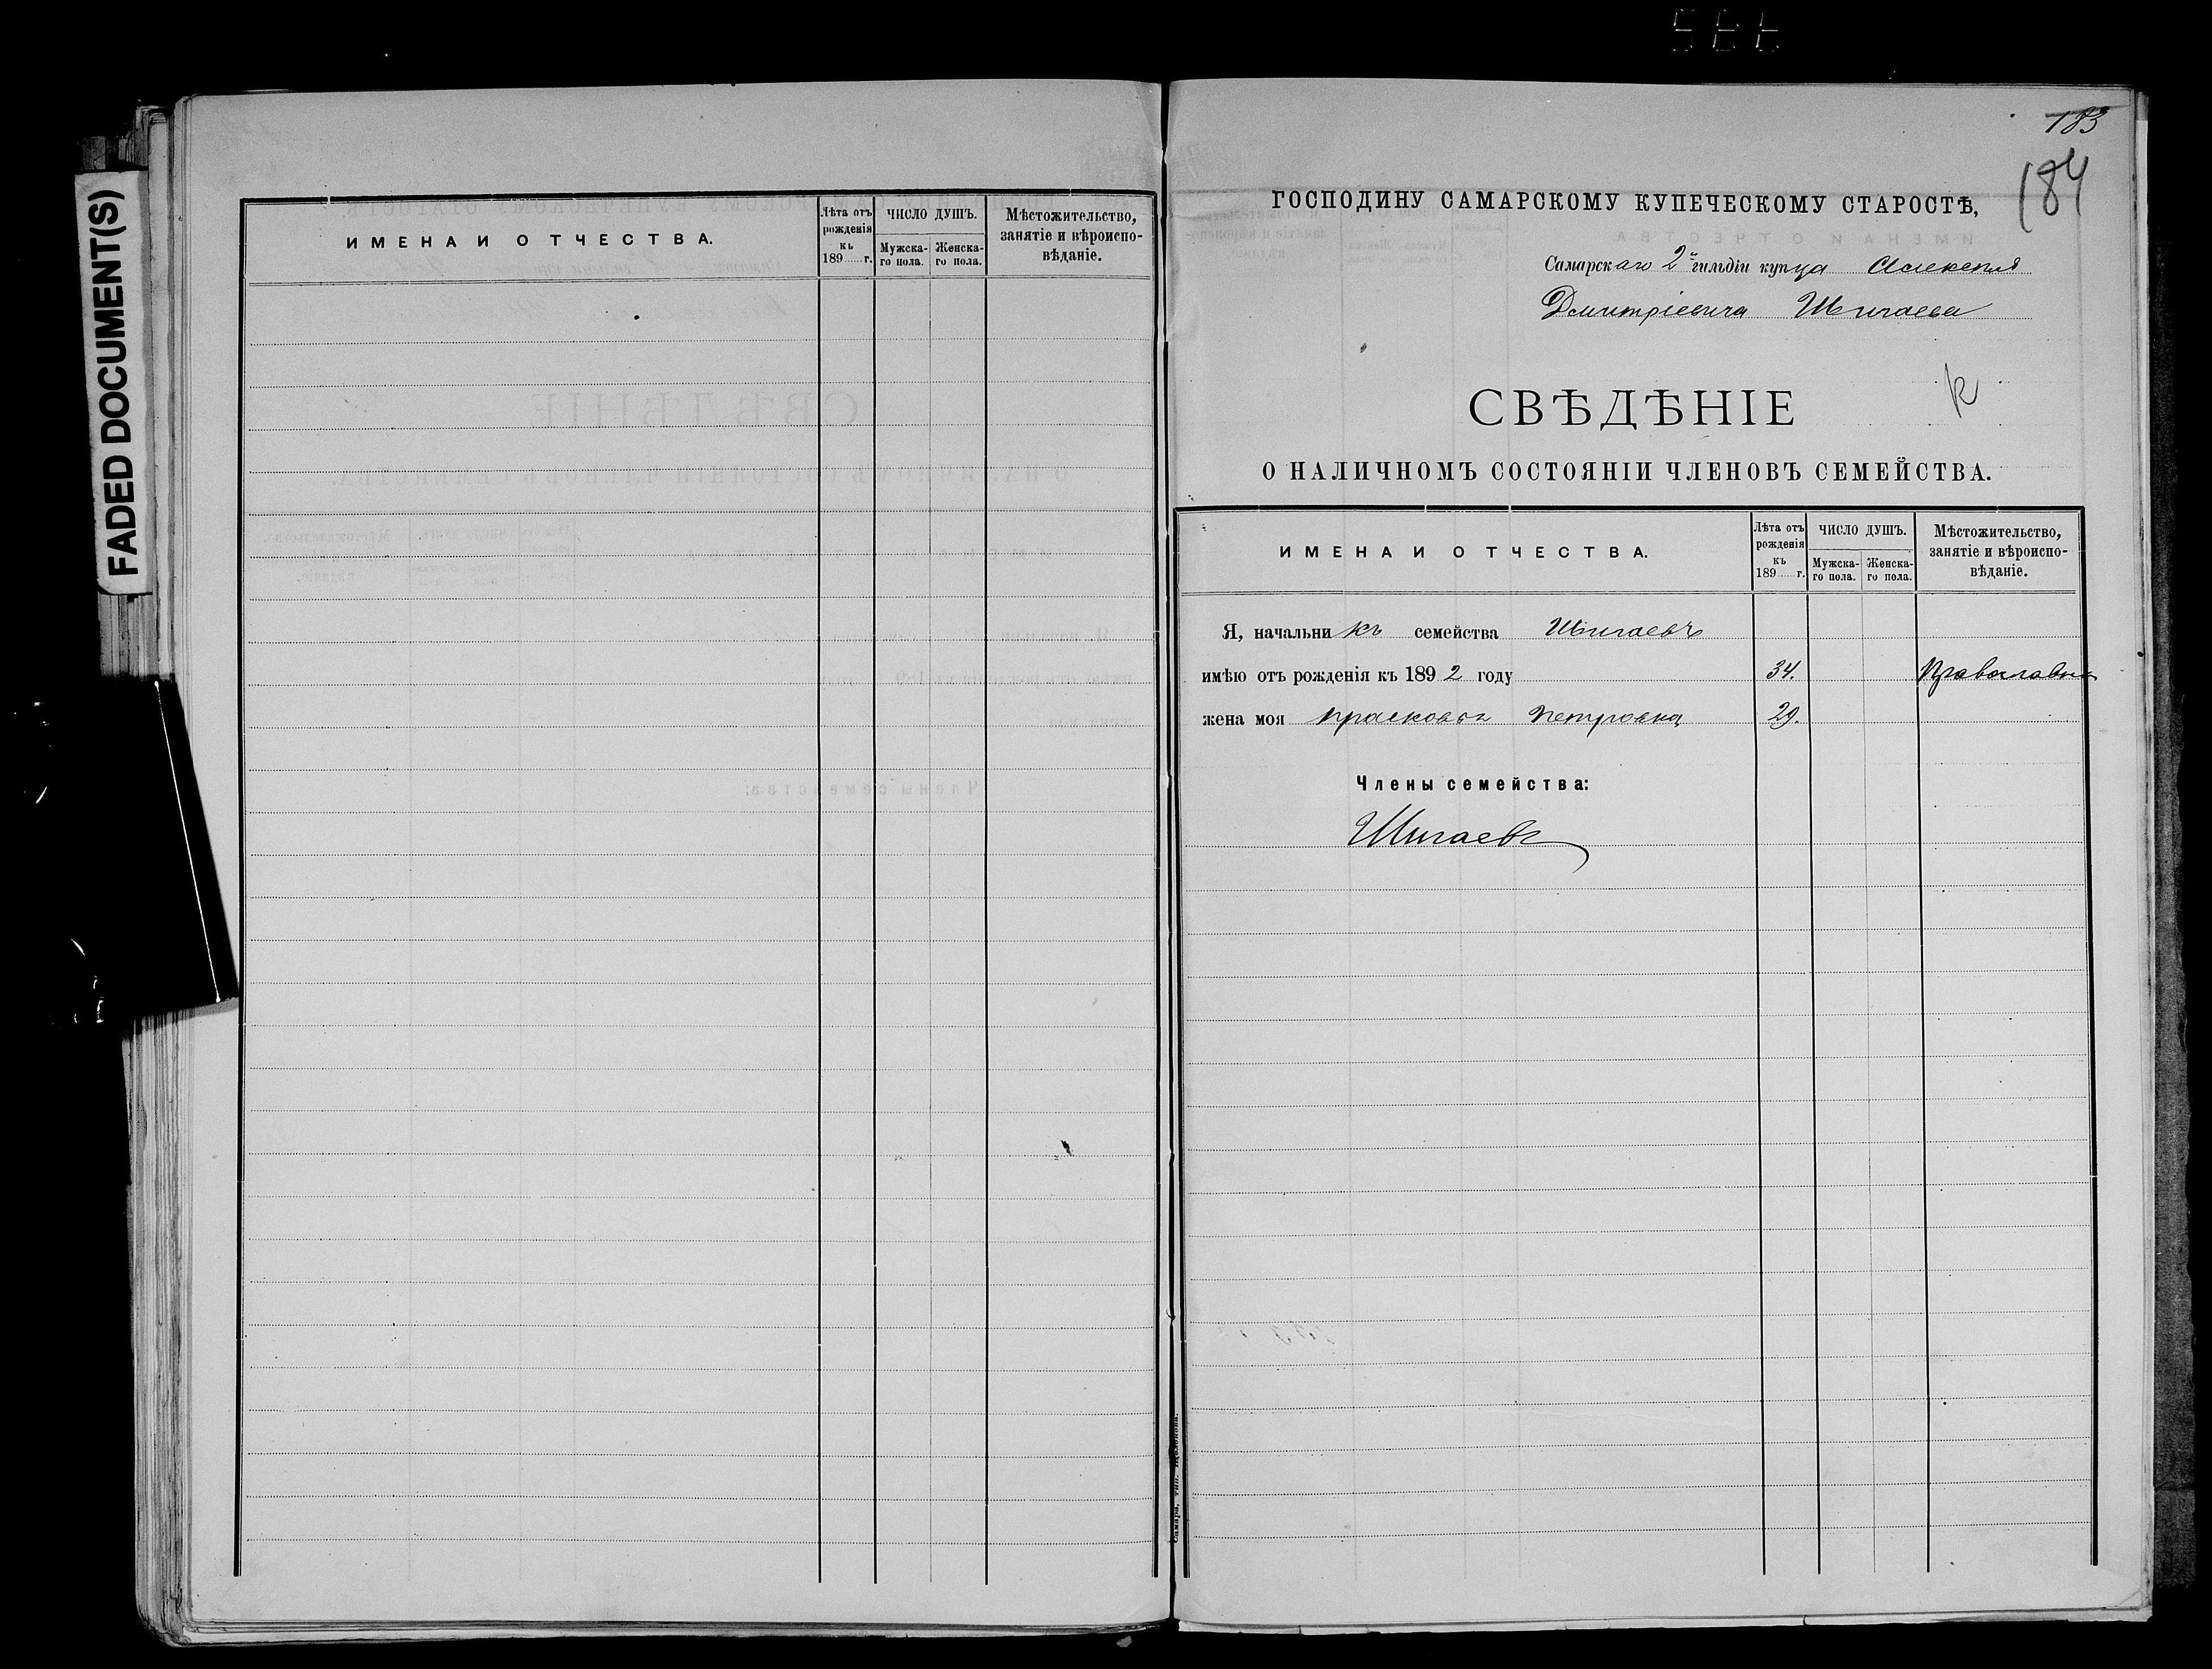 FADED DOCUMENT(S)
ИМЕНА И ОТЧЕСТВА.
Лѣта отъ рожденія къ 189 г.
ЧИСЛО ДУШЪ.
Мужска-го пола.
Женска-го пола.
Мѣстожительство, занятіе и вѣроиспо-вѣданіе.
183
184
ГОСПОДИНУ САМАРСКОМУ КУПЕЧЕСКОМУ СТАРОСТѢ,
Самарскаго 2й гильдіи купца Алексея
Дмитріевича Шигаева
СВѢДѢНІЕ
О НАЛИЧНОМЪ СОСТОЯНІИ ЧЛЕНОВЪ СЕМЕЙСТВА.
ИМЕНА И ОТЧЕСТВА.
Лѣта отъ рожденія къ 189 г.
ЧИСЛО ДУШЪ.
Мужска-го пола.
Женска-го пола.
Мѣстожительство, занятіе и вѣроиспо-вѣданіе.
Я, начальникъ семейства Шигаевъ
имѣю отъ рожденія къ 1892 году 34.
жена моя Прасковья Петровна 29.
Члены семейства:
Шигаевъ
Самара, тип. Щелокова.